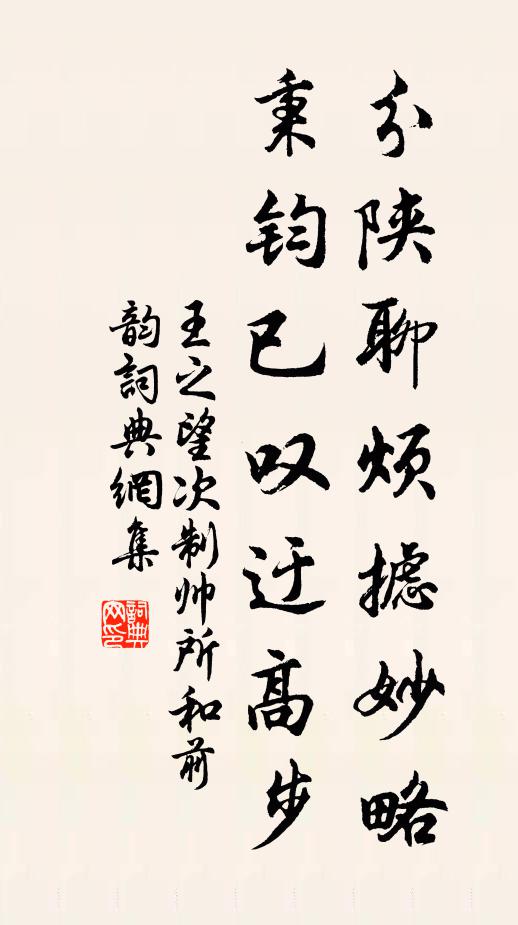 分陕聊烦摅妙略
秉钧已叹迂高步
王之望次制帅所和前
韵詞典網集
詞典网印